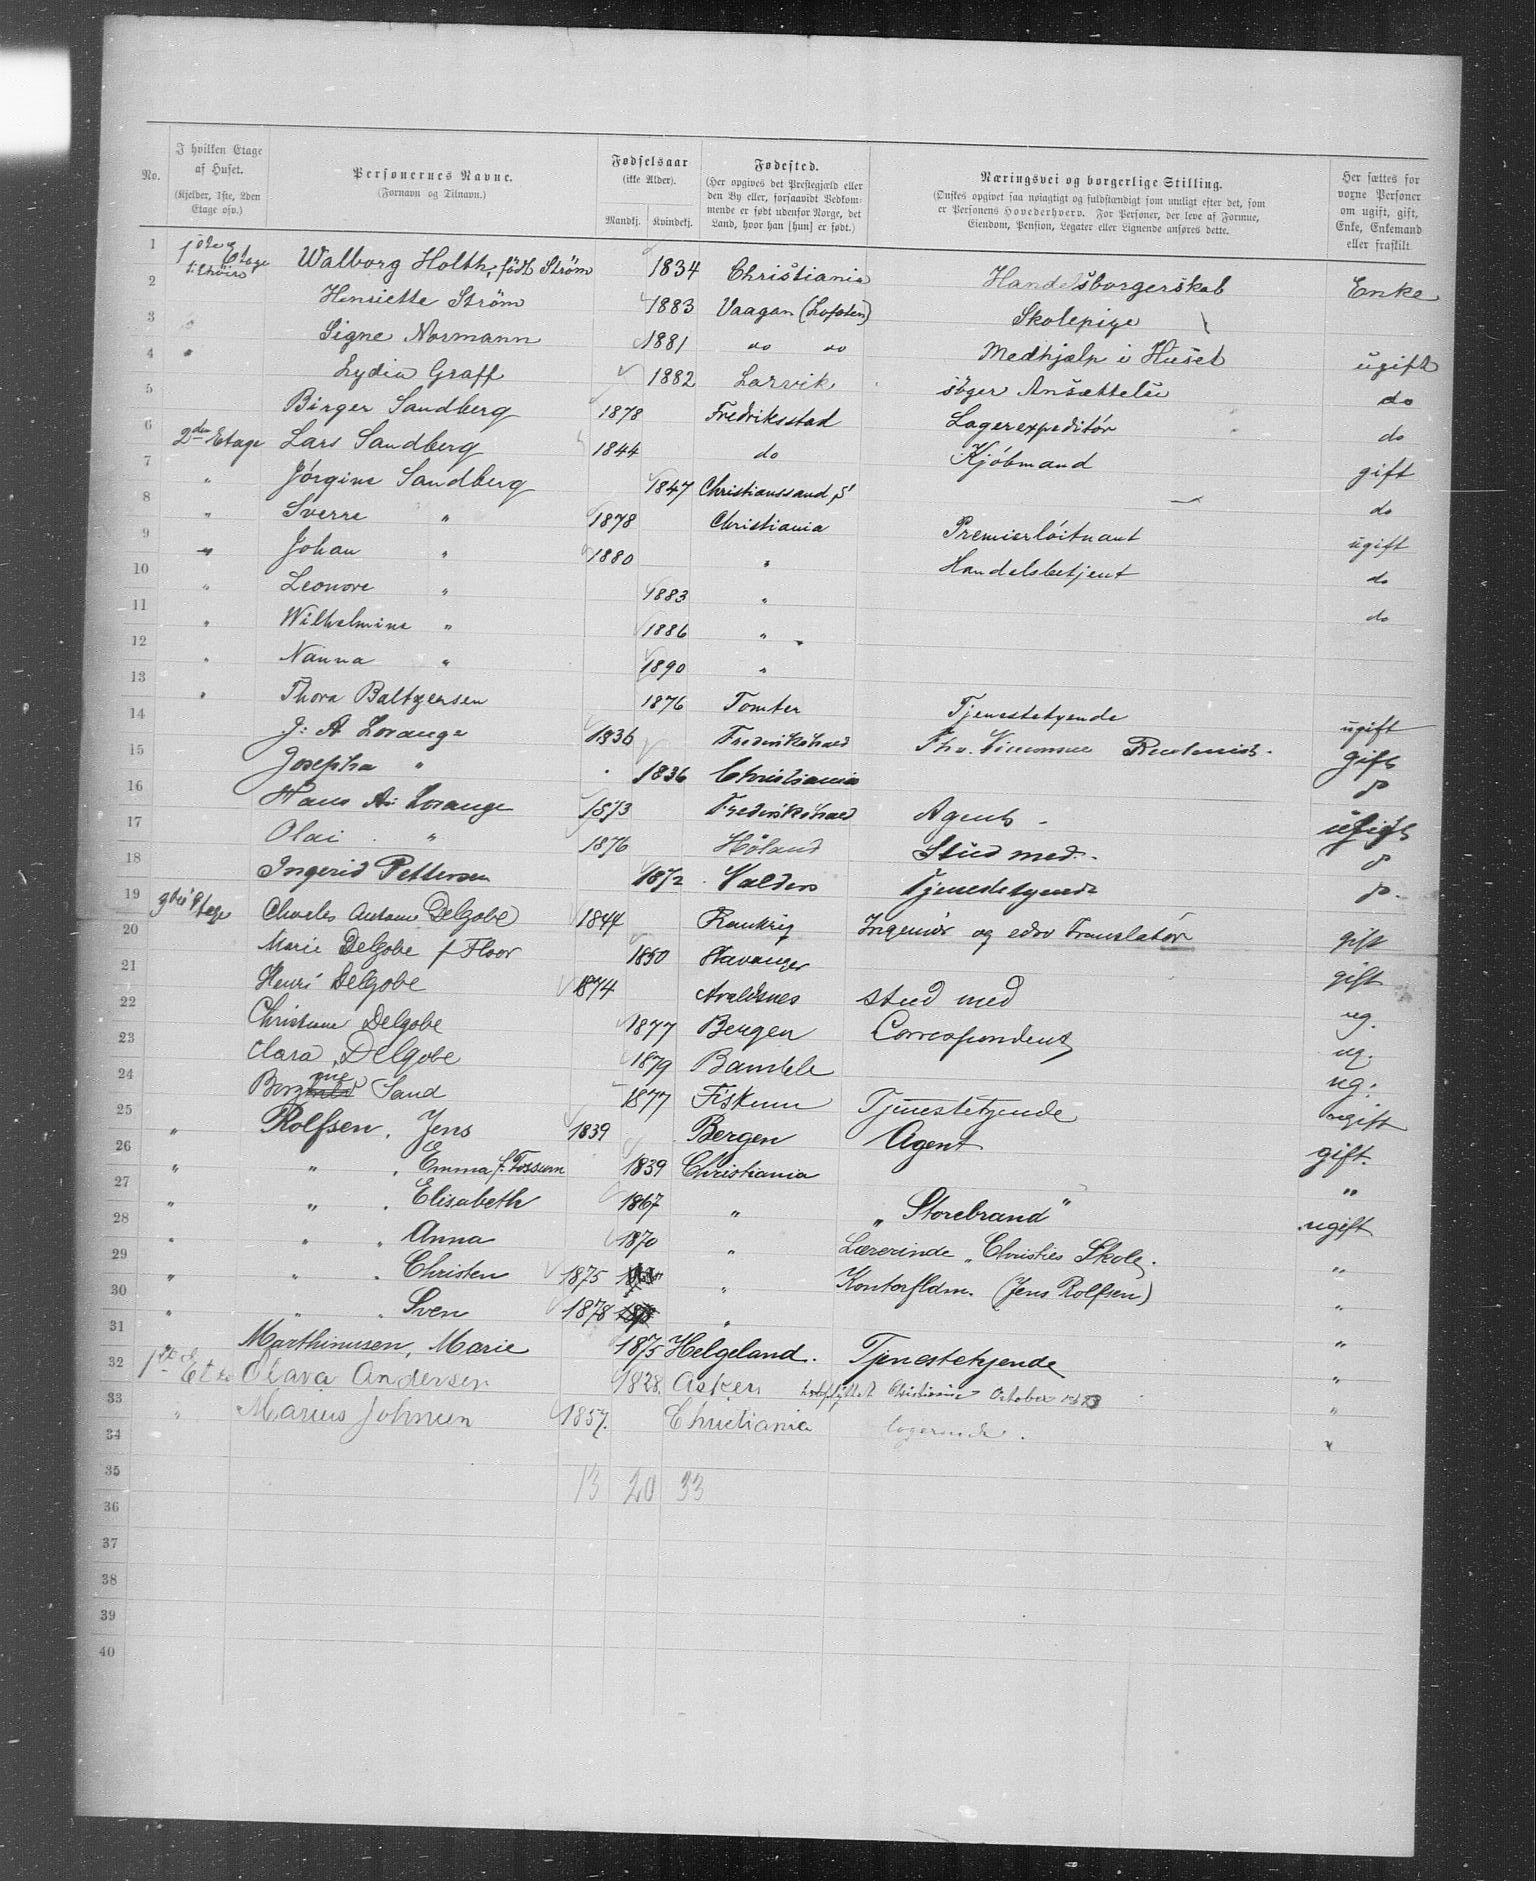 No. I hvilken Etage af Huset. (Kjelder, 1ste, 2den Etage osv.) Personernes Navne. (Fornavn og Tilnavn.) Fødselsaar (ikke Alder). Mandkj. Kvindekj. Fødested. (Her opgives det Prestegjæld eller den By eller, forsaavidt Vedkommende er født udenfor Norge, det Land, hvor han [hun] er født.) Næringsvei og borgerlige Stilling. (Ønskes opgivet saa nøiagtigt og fuldstændigt som muligt efter det, som er Personens Hovederhverv. For Personer, der leve af Formue, Eiendom, Pension, Legater eller Lignende anføres dette. Her sættes for voxne Personer om ugift, gift, Enke, Enkemand eller fraskilt.
1 1ste Etage tilhøire Walborg Holth, født Strøm 1834 Christiania Handelsborgerskab Enke
2 Henriette Strøm 1883 Vaagan (Lofoten) Skolepige
3 " Signe Normann 1881 do do Medhjælp i Huset ugift
4 " Lydia Graff 1882 Larvik søger Ansættelse do
5 Birger Sandberg 1878 Fredriksstad Lagerexpeditör do
6 2den Etage Lars Sandberg 1844 do Kjøbmand gift
7 " Jørgine Sandberg 1847 Christianssand S. — do
8 " Sverre " 1878 Christiania Premierløitnant ugift
9 " Johan " 1880 " Handelsbetjent do
10 " Leonore " 1883 " do
11 " Wilhelmine " 1886 "
12 " Nanna " 1890 "
13 " Thora Baltzersen 1876 Tomter Tjenestetyende ugift
14 J. A. Lorange 1836 Frederikshald gift
15 Josepha " 1836 Christiania do
16 Hans A. Lorange 1873 Frederikshald Agent - ugift
17 Olai " 1876 Høland Stud med. do
18 Ingerid Pettersen 1872 Valders Tjenestetyende do.
19 3die Etage Charles Antoine DelGobe 1844 Frankrig Ingeniör og edsv Translatör gift
20 Marie DelGobe f Floor 1850 Stavanger gift
21 Henri DelGobe 1874 Avaldsnes stud med ug.
22 Christiane DelGobe 1877 Bergen Correspondent ug.
23 Clara DelGobe 1879 Bamble ug.
24 Bergnie Sand 1877 Fiskum Tjenestetyende ugift
25 " Rolfsen, Jens 1839 Bergen Agent gift.
26 " " , Emma f. Fossum 1839 Christiania "
27 " " , Elisabeth 1867 " „Storebrand" ugift
28 " " , Anna 1870 " Lærerinde „Christies Skole. "
29 " " , Christen 1875 " Kontorfldm. (Jens Rolfsen) "
30 " " , Sven 1878 " "
31 Marthinusen, Marie 1875 Helgeland. Tjenestetyende "
32 1ste Et Clara Andersen 1828. Asker Christiania October "
33 " Marius Johnsen 1857. Christiania logerende. "
34
35 13 20 33
36
37
38
39
40